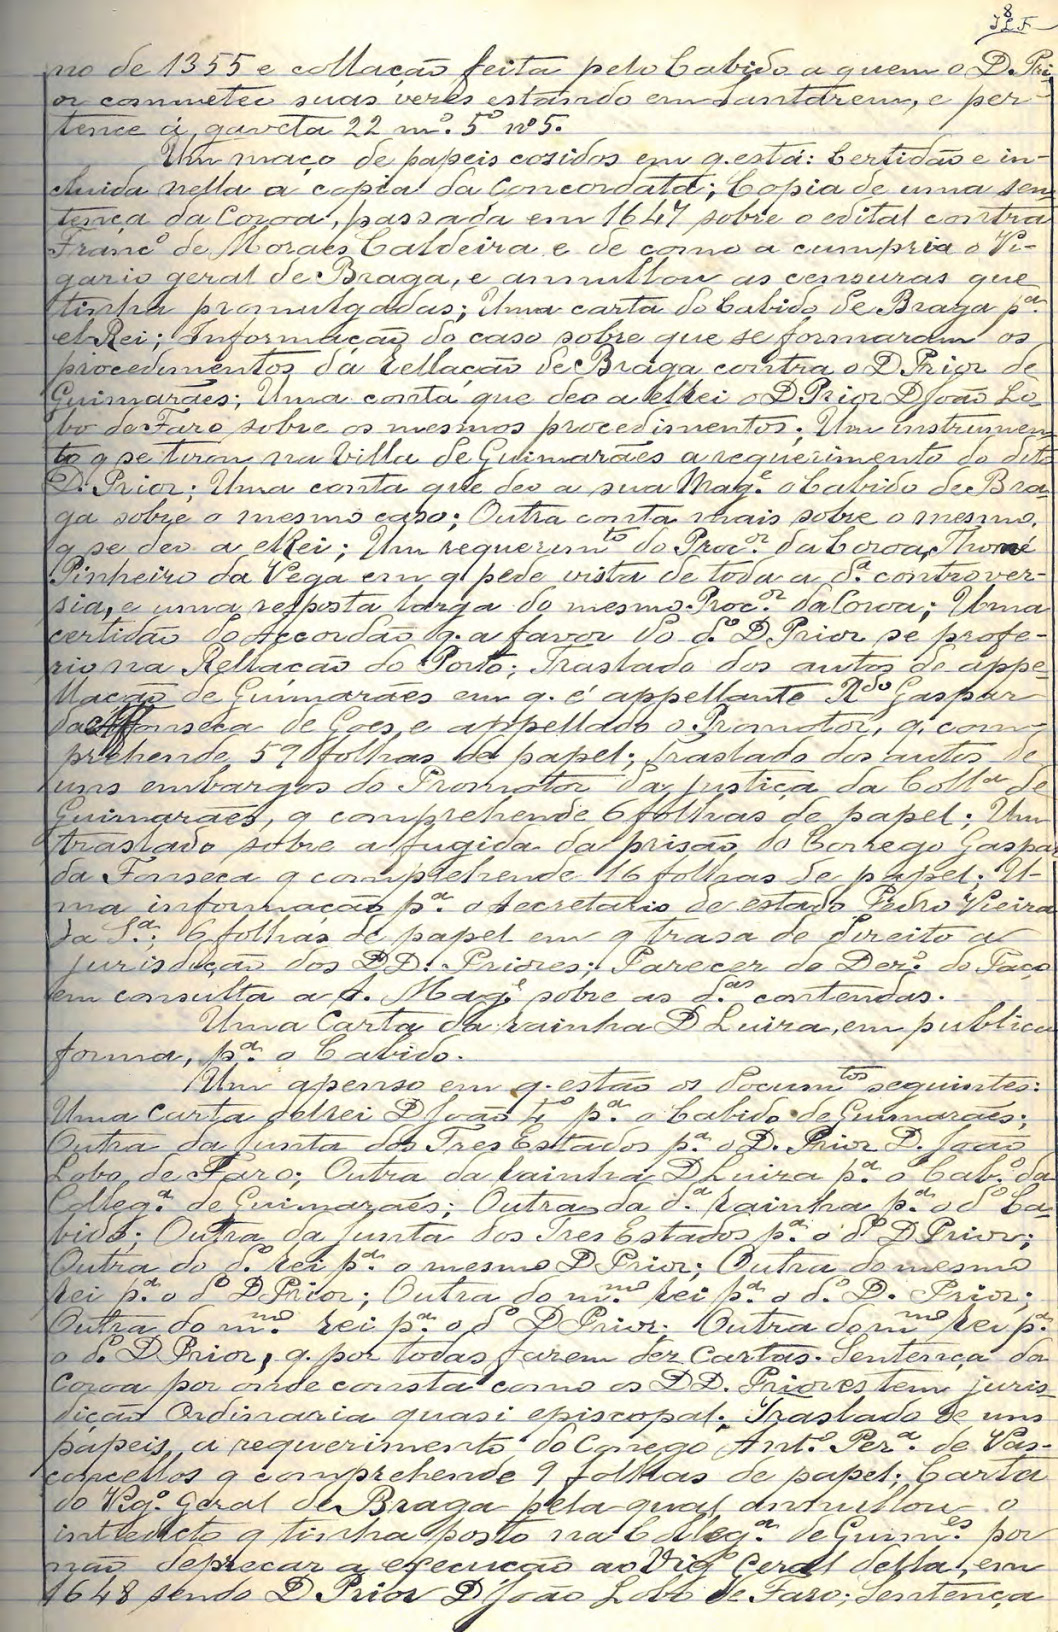 8
no de 1355 e collação feita pelo Cabido a quem o D. Pri-
or commeteo suas vezes estando em Santarem, e per-
tence á gaveta 22 mº. 5º nº 5.
Um maço de papeis cozidos em q. está: Certidão e in-
cluida nella a copia da Concordata; Copia de uma sen-
tença da Coroa, passada em 1647 sobre o edital contra
Francº de Moraes Caldeira e de como a cumpria o Vi-
gario geral de Braga, e annullou as censuras que
tinha promulgadas; Uma carta do Cabido de Braga pª.
el-Rei; Informação do caso sobre que se formaram os
procedimentos da Rellação de Braga contra o D Prior de
Guimarães; Uma conta que deo a elRei o D Prior D João Lo-
bo de Faro sobre os mesmos procedimentos; Um instrumen-
to q se tirou na Villa de Guimarães a requerimento do dito
D. Prior; Uma conta que deo a sua Mag.e o Cabido de Bra-
ga sobre o mesmo caso; Outra conta mais sobre o mesmo,
q se deo a elRei; Um requerim.to do Proc.or da Coroa, Thomé
Pinheiro da Vega em q pede vista de toda a d.a controver-
sia, e uma resposta larga do mesmo Proc.or da Coroa; Uma
certidão do Accordão q. a favor do d.o D Prior se profe-
rio na Rellação do Porto; Traslado dos autos de appe-
llação de Guimarães em q. é appellante R.do Gaspar
da Fonseca de Goes, e appellado o Promotor, q. com-
prehende 59 folhas de papel; Traslado dos autos de
uns embargos do Promotor da justiça da Coll.a de
Guimarães, q comprehende 6 folhas de papel; Um
traslado sobre a fugida da prisão do Conego Gaspar
da Fonseca q comprehende 16 folhas de papel; U-
ma informação p.a o secretario de estado Pedro Vieira
da S.a; 6 folhas de papel em q trata de direito a
jurisdicção dos DD. Priores; Parecer do Der.o do Paço
em consulta a S. Mag.e sobre as d.as contendas.
Uma Carta da rainha D Luiza, em publica
forma, p.a o Cabido.
Um apenso em q. estão os docum.tos seguintes:
Uma carta delrei D João 4º p.a o Cabido de Guimarães;
Outra da Junta dos Tres Estados p.a o D. Prior D. João
Lobo de Faro; Outra da rainha D Luiza p.a o Cab.o da
Colleg.a de Guimarães; Outra da d.a rainha p.a o d.o Ca-
bido; Outra da Junta dos Tres Estados p.a o d.o D Prior;
Outra do d.o rei p.a o mesmo D Prior; Outra do mesmo
rei p.a o d.o D Prior; Outra do m.mo rei p.a o d.o D. Prior;
Outra do m.mo rei p.a o d.o D Prior; Outra do m.mo rei p.a
o d.o D Prior, q. por todas fazem dez Cartas. Sentença da
Coroa por onde consta como os DD. Priores tem juris-
dição Ordinaria quasi episcopal; Traslado de uns
papeis, a requerimento do Conego Ant.o Per.a de Vas-
concellos q comprehende 9 folhas de papel; Carta
do Vig.o Geral de Braga pela qual annullou o
interdicto q tinha posto na Colleg.a de Guim.es por
não deprecar a execução ao Vig.o Geral della, em
1648 sendo D Prior D João Lobo de Faro; Sentença